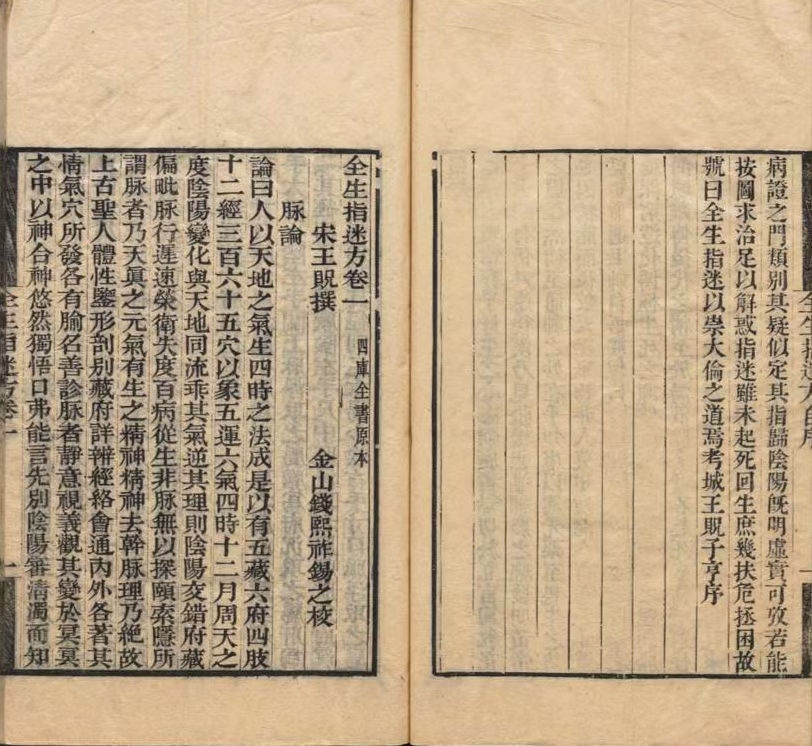 病證之門類別其疑似定其指歸陰陽旣明虛實可攷若能
按圖求治足以解惑指迷雖未起死回生庶幾扶危拯困故
號曰全生指迷以崇大倫之道焉考城王貺子亨序
全生指迷方卷一 四庫全書原本
宋王貺撰 金山錢熙祚錫之校
脉論
論曰人以天地之氣生四時之法成是以有五藏六府四肢
十二經三百六十五穴以象五運六氣四時十二月周天之
度陰陽變化與天地同流乖其氣逆其理則陰陽交錯府藏
偏毗脉行遲速榮衛失度百病從生非脉無以探賾索隱所
謂脉者乃天眞之元氣有生之精神精神去幹脉理乃絶故
上古聖人體性鑒形剖别藏府詳辨經絡會通內外各著其
情氣穴所發各有腧名善診脉者靜意視義觀其變於冥冥
之中以神合神悠然獨悟口弗能言先别陰陽審淸濁而知
全生指迷方卷一
一